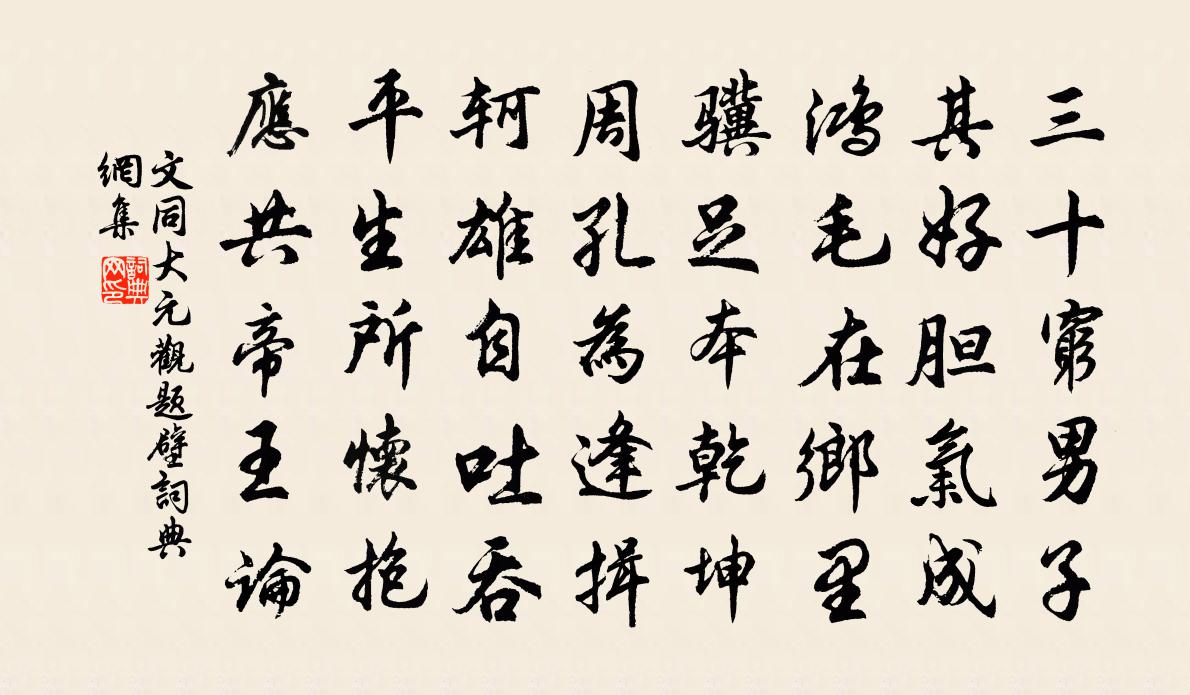 三十窮男子
其好胆氣成
鴻毛在鄉里
驥足本乾坤
周孔為逢揖
軻雄自吐吞
平生所懷抱
應共帝王論
文同大元觀題壁詞典
網集
詞典
网印